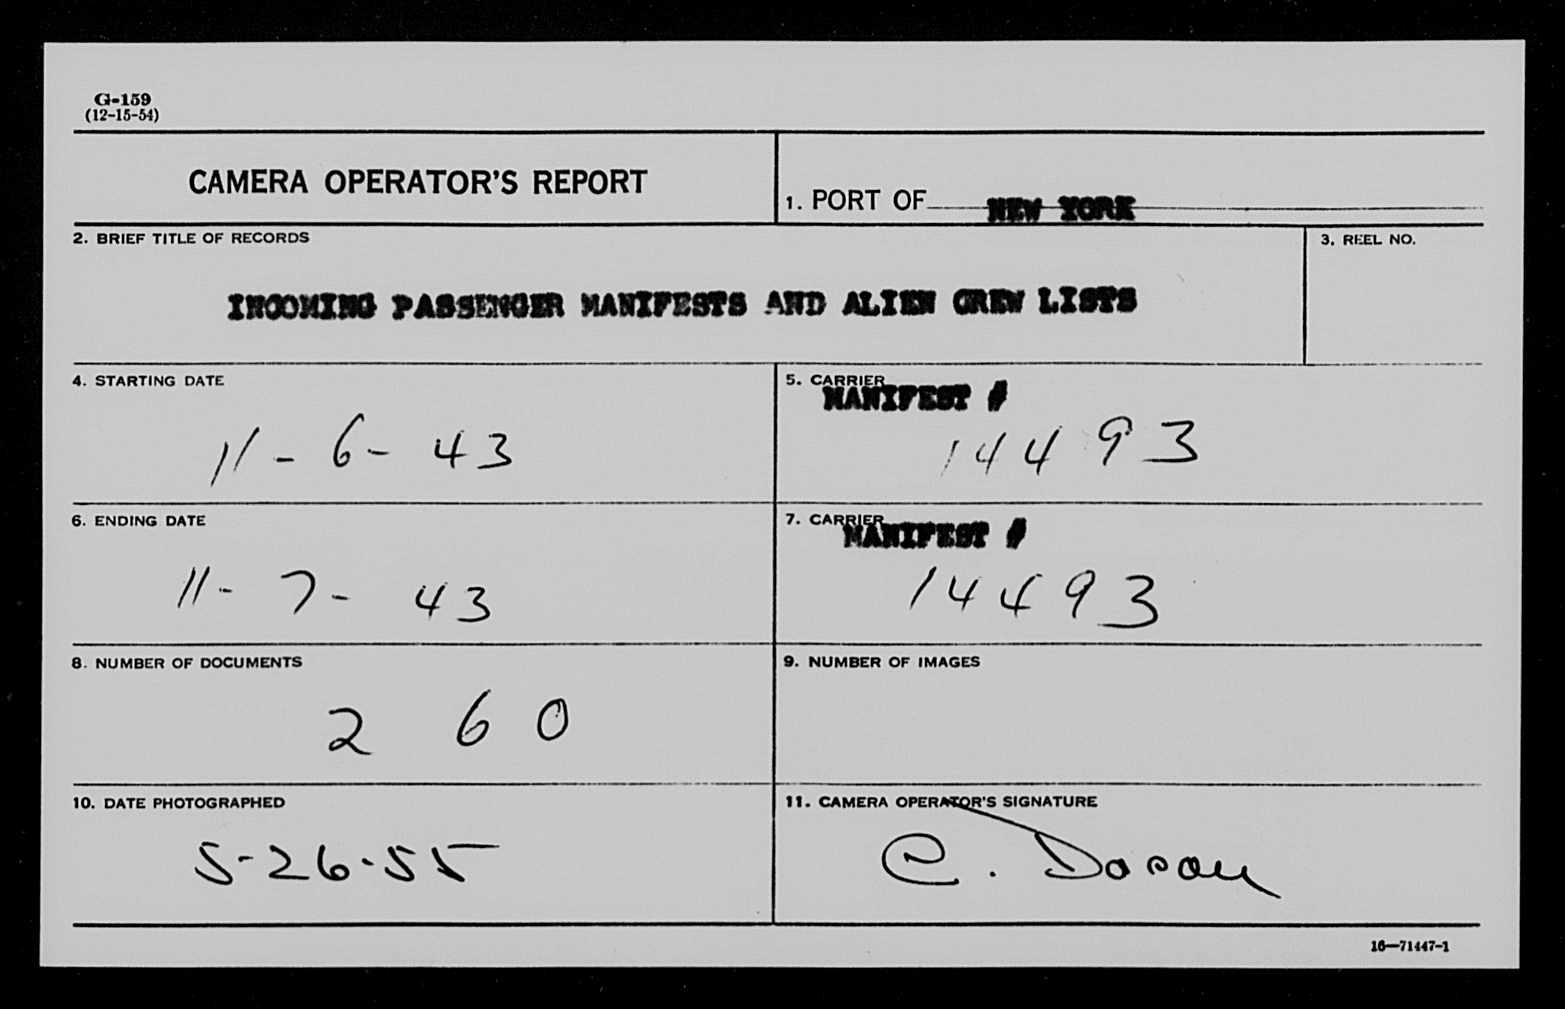 G-159
(12-15-54)
CAMERA OPERATOR'S REPORT
1. PORT OF NEW YORK
2. BRIEF TITLE OF RECORDS
3. REEL NO.
INCOMING PASSENGER MANIFESTS AND ALIEN CREW LISTS
4. STARTING DATE
11-6-43
5. CARRIER
MANIFEST #
14493
6. ENDING DATE
11-7-43
7. CARRIER
MANIFEST #
14493
8. NUMBER OF DOCUMENTS
260
9. NUMBER OF IMAGES
10. DATE PHOTOGRAPHED
5-26-55
11. CAMERA OPERATOR'S SIGNATURE
C.
16—71447-1